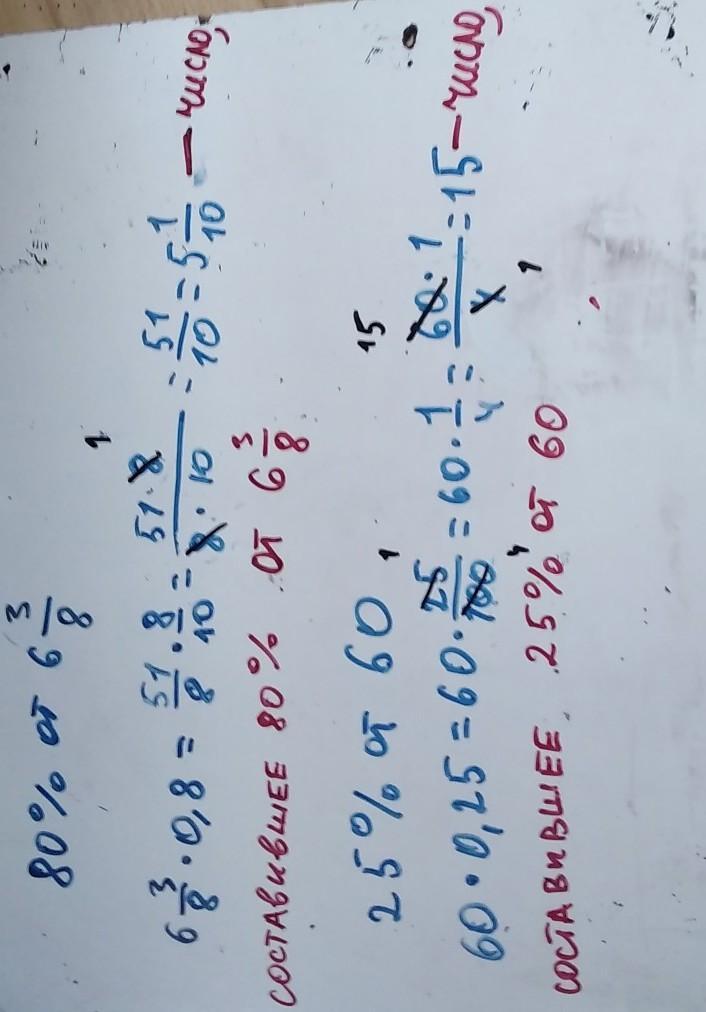 80% от 6 3/8
6 3/8 · 0,8 = 51/8 · 8/10 = 51·8/8·10 = 51/10 = 5 1/10 — число,
1
составившее 80% от 6 3/8
25% от 60
60 · 0,25 = 60 · 25/100 = 60 · 1/4 = 60·1/4 = 15 — число,
1 4 15 1
составившее 25% от 60